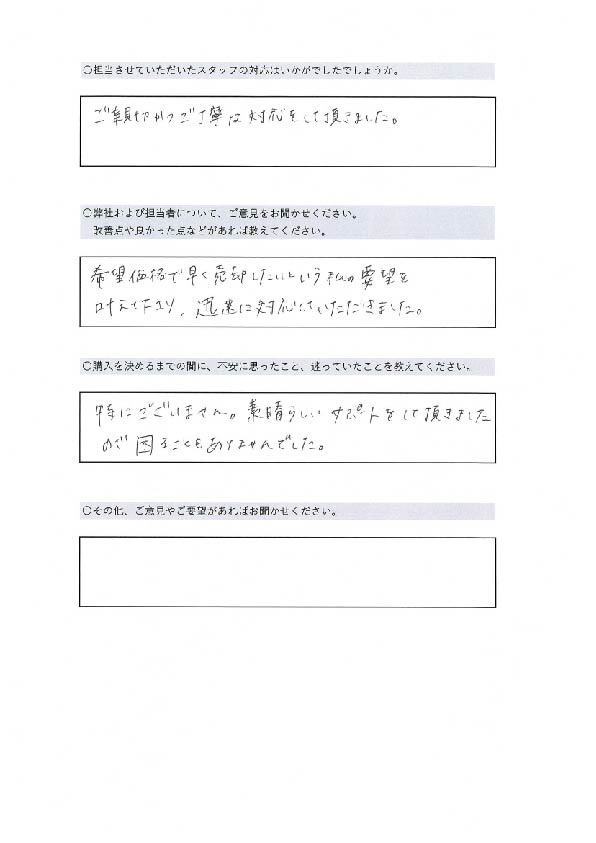 〇担当させていただいたスタッフの対応はいかがでしたでしょうか。
ご親切かつご丁寧な対応をして頂きました。
〇弊社および担当者について、ご意見をお聞かせください。
改善点や良かった点などがあれば教えてください。
希望価格で早く売却したいという私の要望を
叶えて下さり、迅速に対応していただきました。
〇購入を決めるまでの間に、不安に思ったこと、迷っていたことを教えてください。
特にございません。素晴らしいサポートをして頂きました
ので困ることもありませんでした。
〇その他、ご意見やご要望があればお聞かせください。